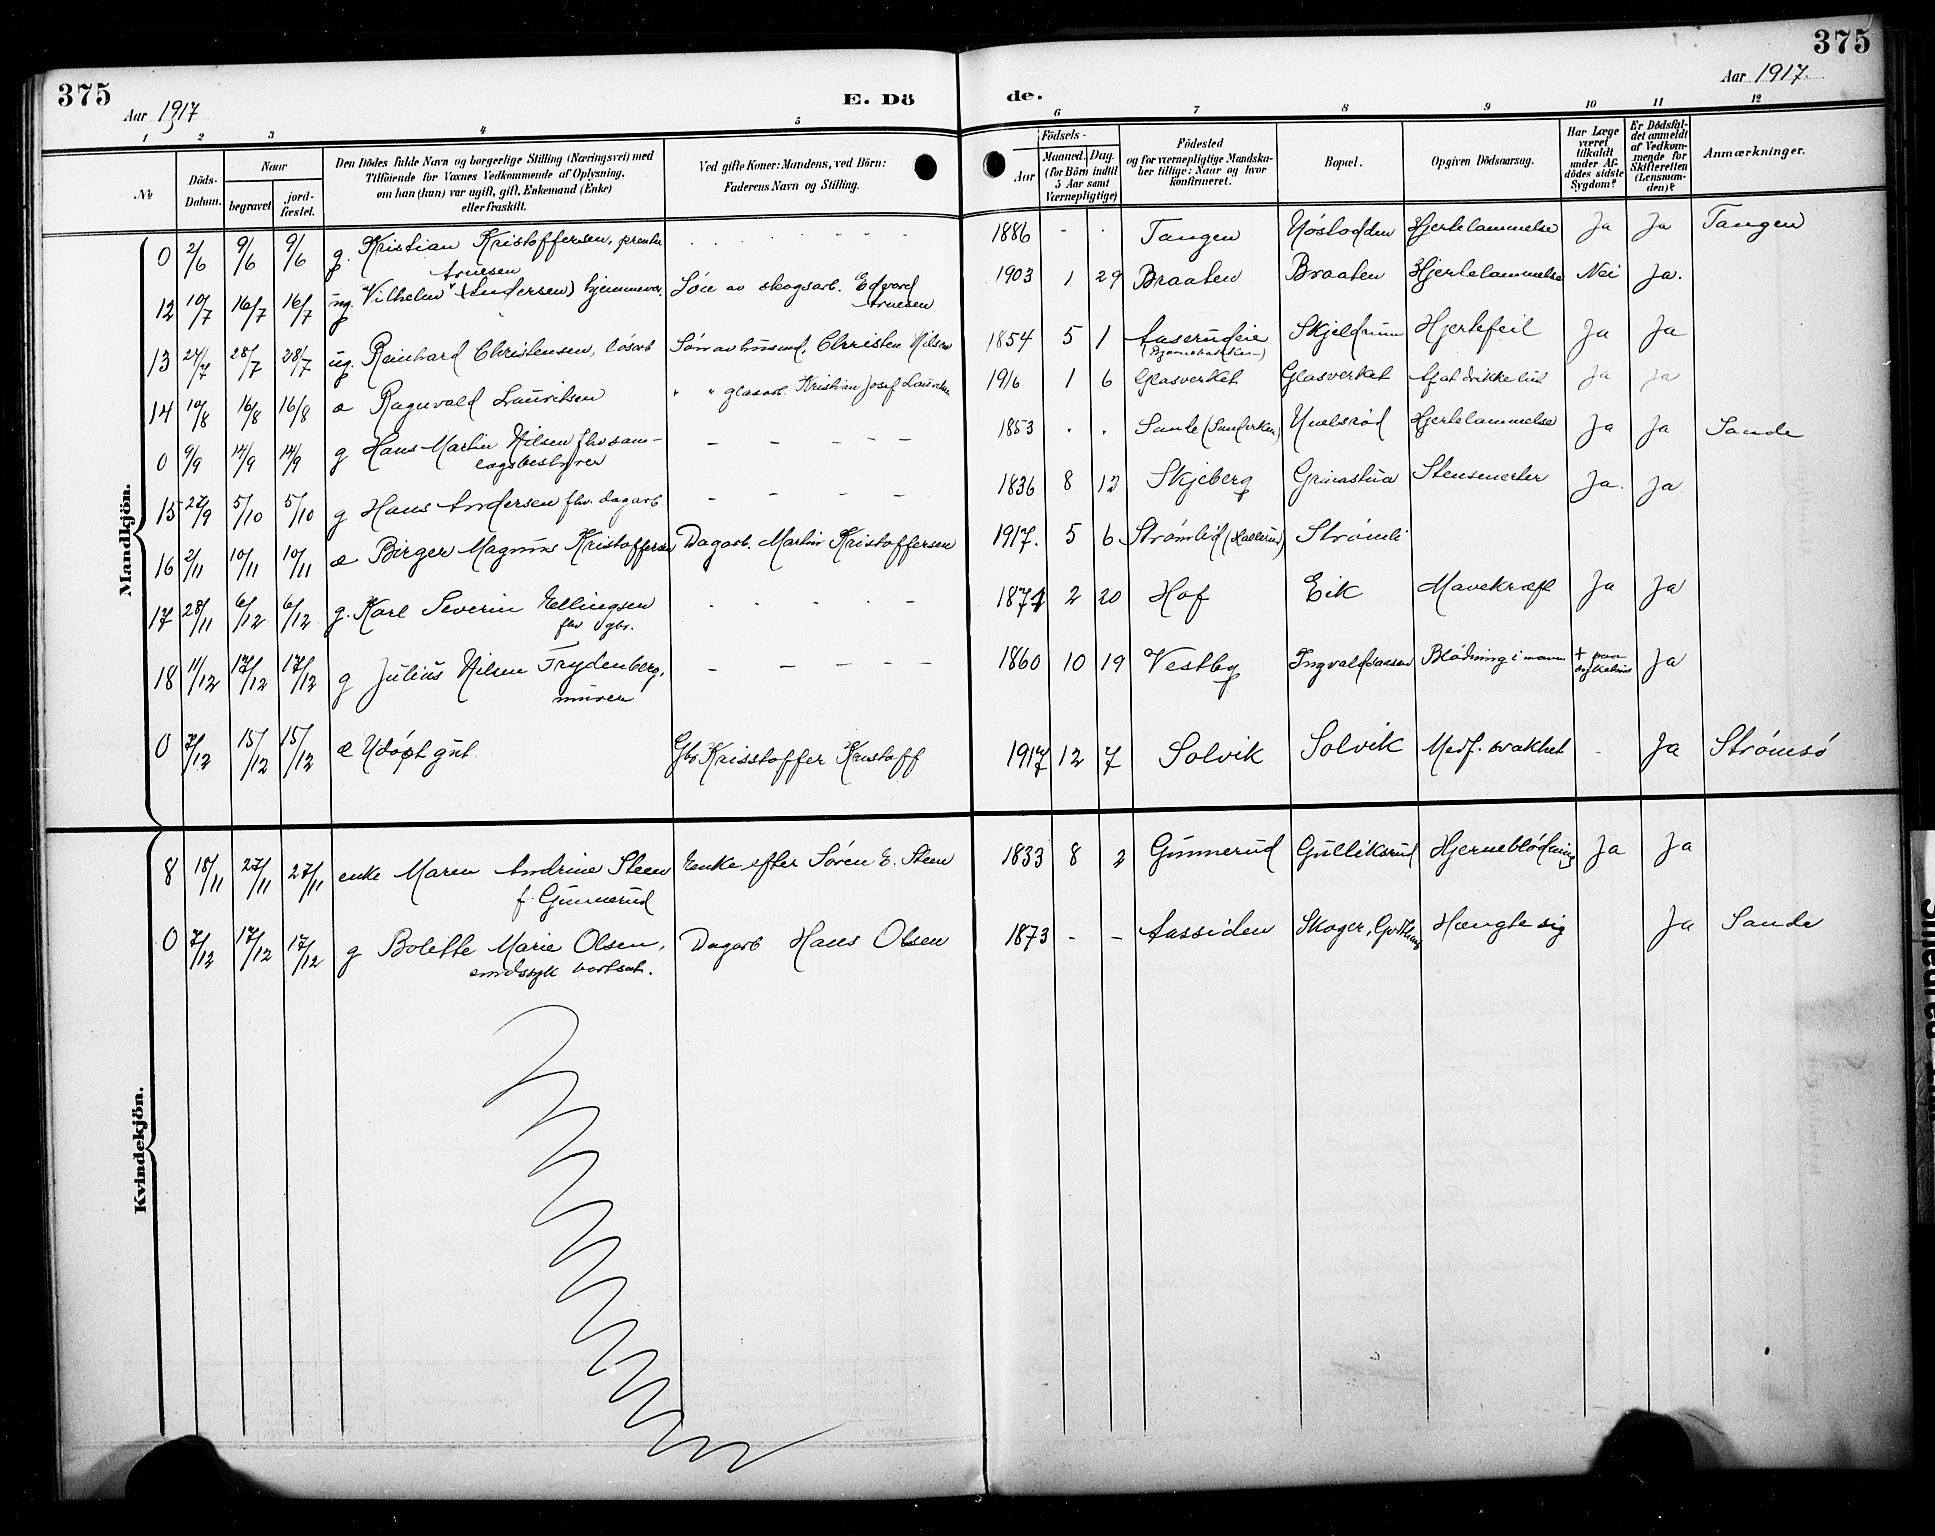 375
Aar 1917
E. Dö
de.
Aar 1917.
375
1 2 3 4 5 6 7 8 9 10 11 12
№
Döds-Datum.
Naar
begravet
jord-fæstet.
Den Dödes fulde Navn og borgerlige Stilling (Næringsvei) med
Tilföiende for Voxnes Vedkommende af Oplysning,
om han (hun) var ugift, gift, Enkemand (Enke)
eller fraskilt.
Ved gifte Koner: Mandens, ved Börn:
Faderens Navn og Stilling.
Födsels-
Aar
Maaned. Dag.
(for Börn indtil
5 Aar samt
Værnepligtige)
Födested
og for værnepligtige Mandska-
ber tillige: Naar og hvor
konfirmeret.
Bopæl.
Opgiven Dödsaarsag.
Har Læge
været
tilkaldt
under Af-
dödes sidste
Sygdom?
Er Dödsfal-
det anmeldt
af Vedkom-
mende for
Skifteretten
(Lensman-
den)?
Anmærkninger.
Mandkjön.
0 2/6 9/6 9/6 g. Kristian Kristoffersen, 1886 - - Tangen Hjertelammelse Ja Ja Tangen
Arnesen
12 10/7 16/7 16/7 ug. Vilhelm (Andersen) hjemmevær. Søn av skogsarb. Edvard Arnesen 1903 1 29 Braaten Braaten Hjertelammelse Nei Ja.
13 24/7 28/7 28/7 ug. Reinhard Christensen, løsarb Søn av husmd. Christen Nilsen 1854 5 1 Aaserudeie Skjeldrum Hjertefeil Ja Ja
14 10/8 16/8 16/8 æ Ragnvald Lauritsen " " glasarb. Kristian Josef Lauritsen 1916 1 6 Glasverket Glasverket Af at drikke lut Ja Ja
0 9/9 14/9 14/9 g Hans Martin Nilsen fhv sam-
lagsbestyrer - - - - 1853 . . Sande Hjertelammelse Ja Ja Sande
15 27/9 5/10 5/10 g Hans Andersen fhv. dagarb - - - - 1836 8 12 Skjeberg Grinastua Stensmerter Ja. Ja
16 2/11 10/11 10/11 æ Birger Magnus Kristoffersen Dagarb. Martin Kristoffersen 1917. 5 6 Strømlid Strømli
17 28/11 6/12 6/12 g. Karl Severin Ellingsen
fhv gbr. 1874 2 20 Hof Eik Mavekræft Ja Ja
18 11/12 17/12 17/12 g Julius Nilsen Frydenberg,
murer - - - - - 1860 10 19 Vestby Blødning i maven Ja
0 7/12 15/12 15/12 æ Udøpt gut Gbr Krisstoffer Kristoff 1917 12 7 Solvik Solvik Medf. svakhet - Ja Strømsø
Kvindekjön.
8 18/11 27/11 27/11 enke Maren Andrine Steen
f. Gunnerud Enke efter Søren E. Steen 1833 8 2 Gunnerud Gulliksrud Hjerneblødning Ja Ja
0 7/12 17/12 17/12 g Bolette Marie Olsen,
sindssyk bortsat. Dagarb Hans Olsen 1873 - - Aassiden Skoger, Hængte sig Ja Sande